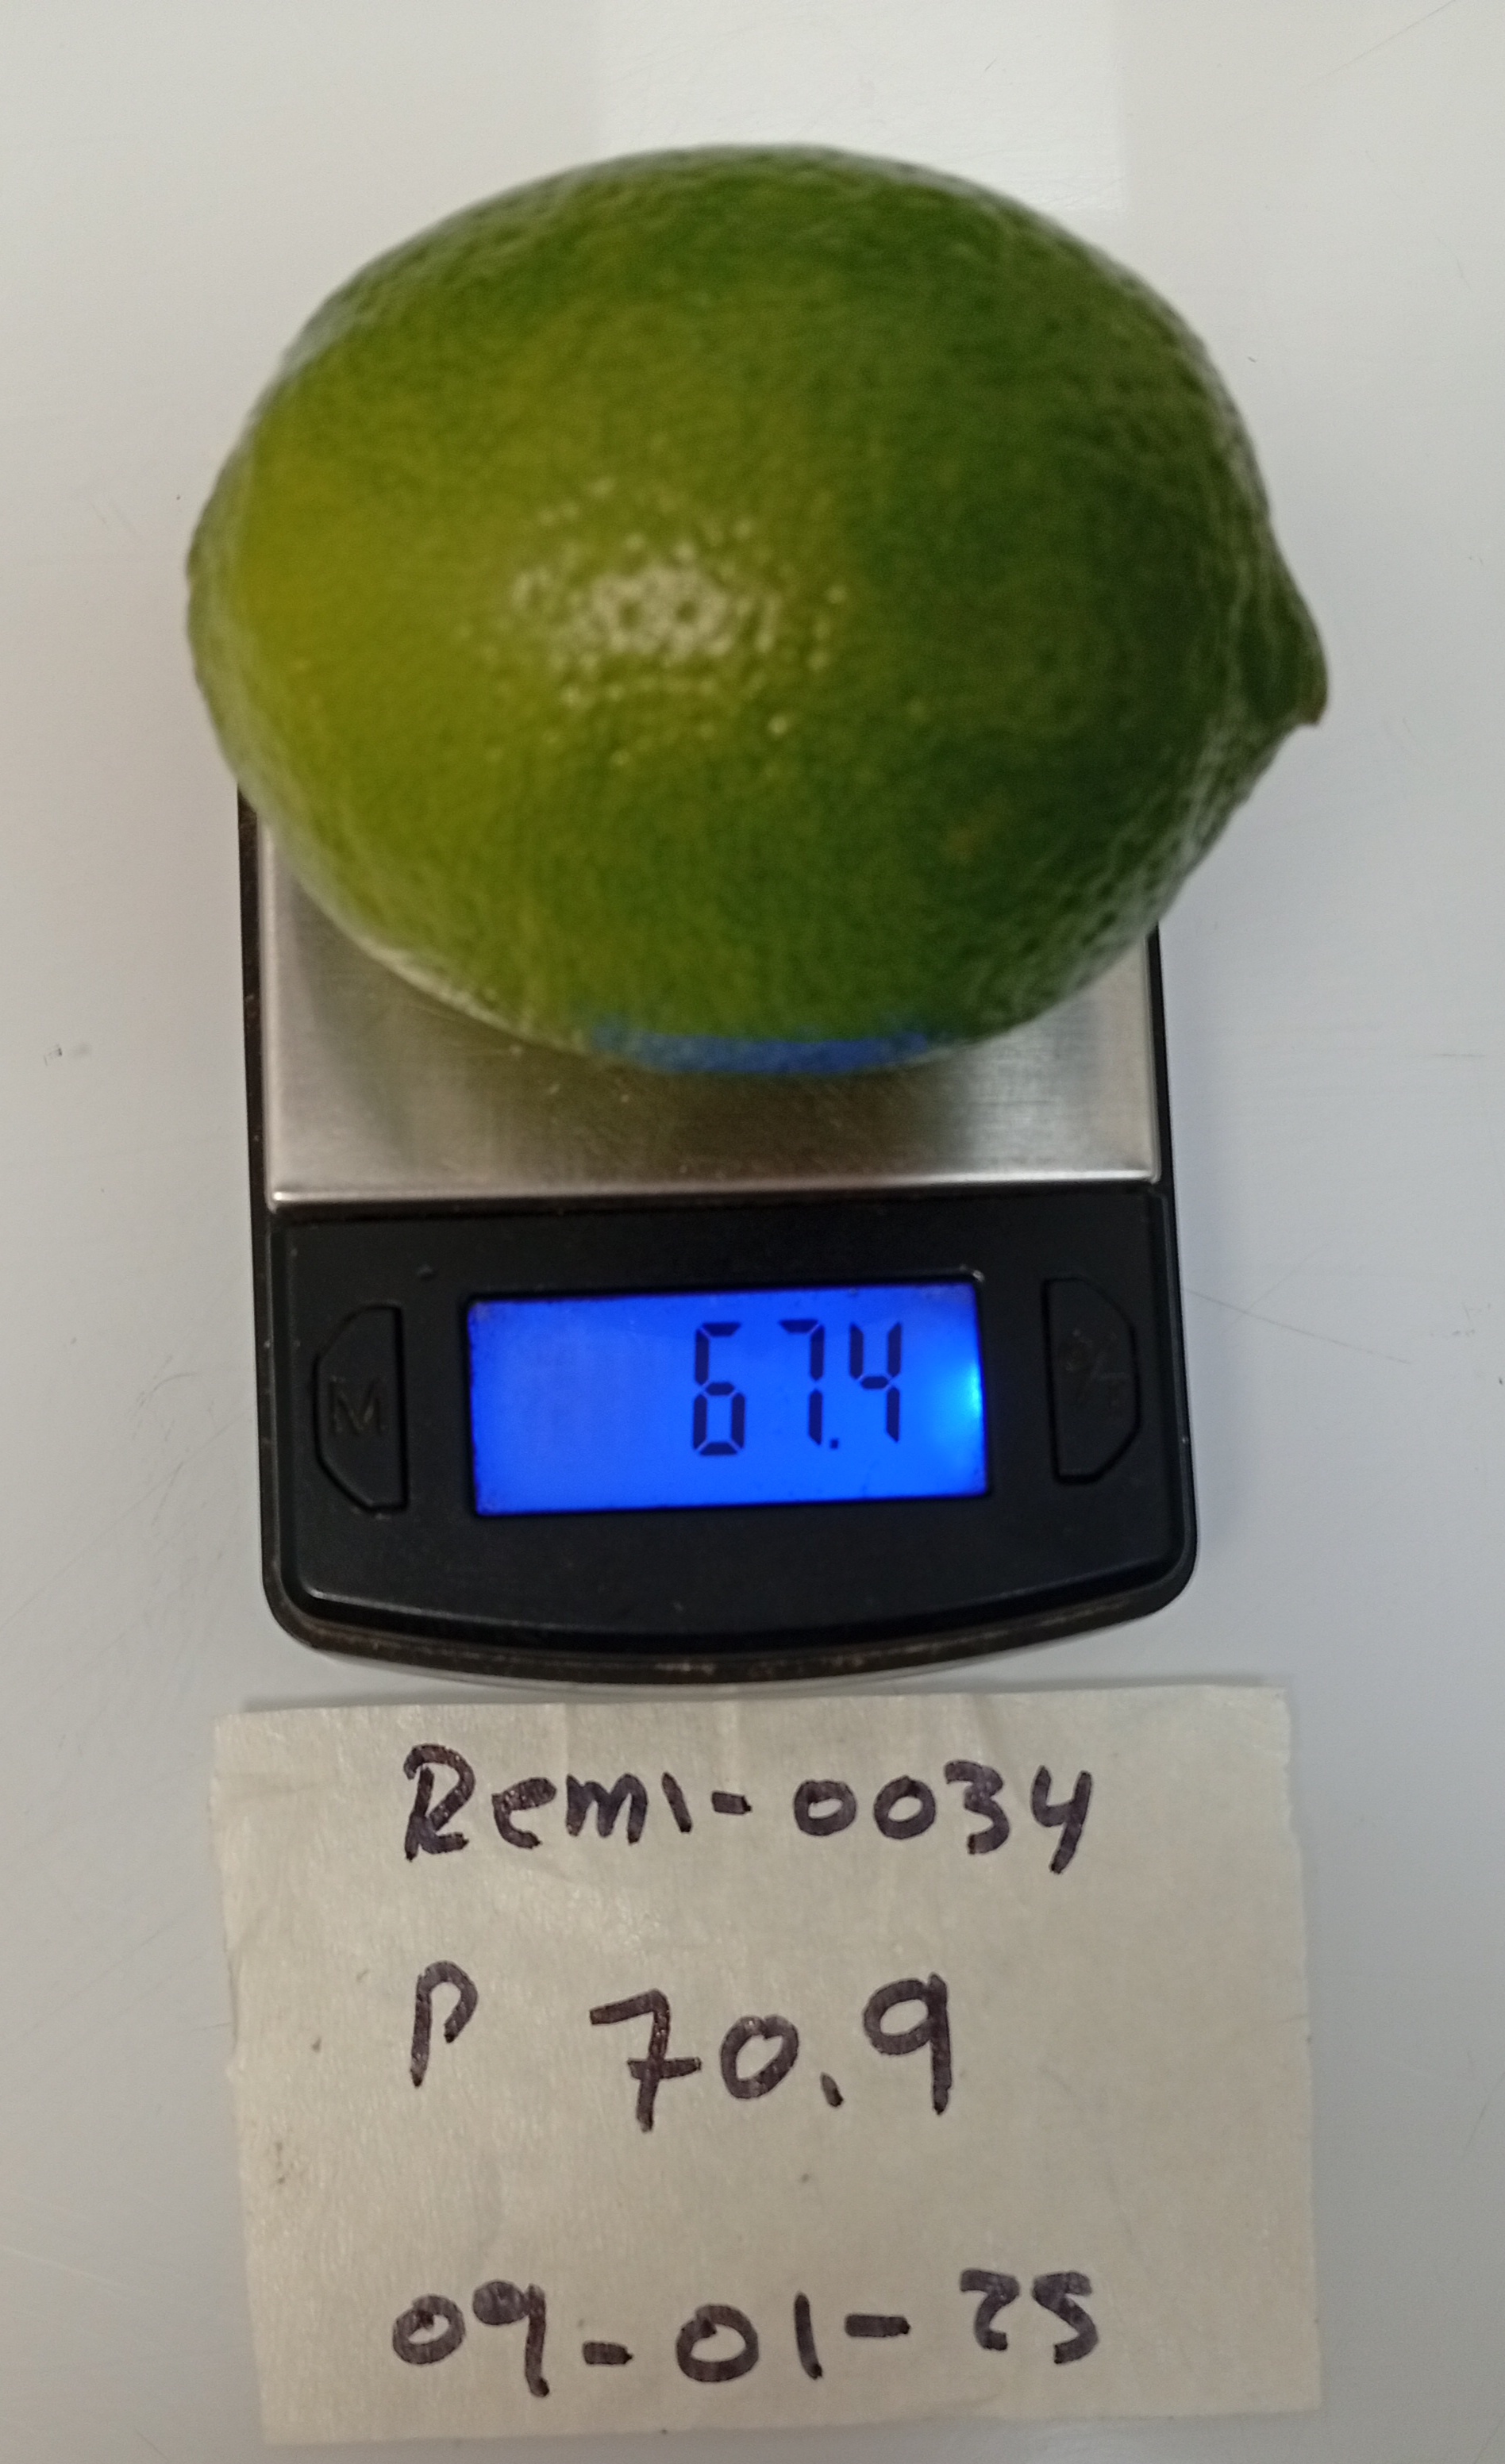 67.4
M
Remi-0034
P 70.9
09-01-25